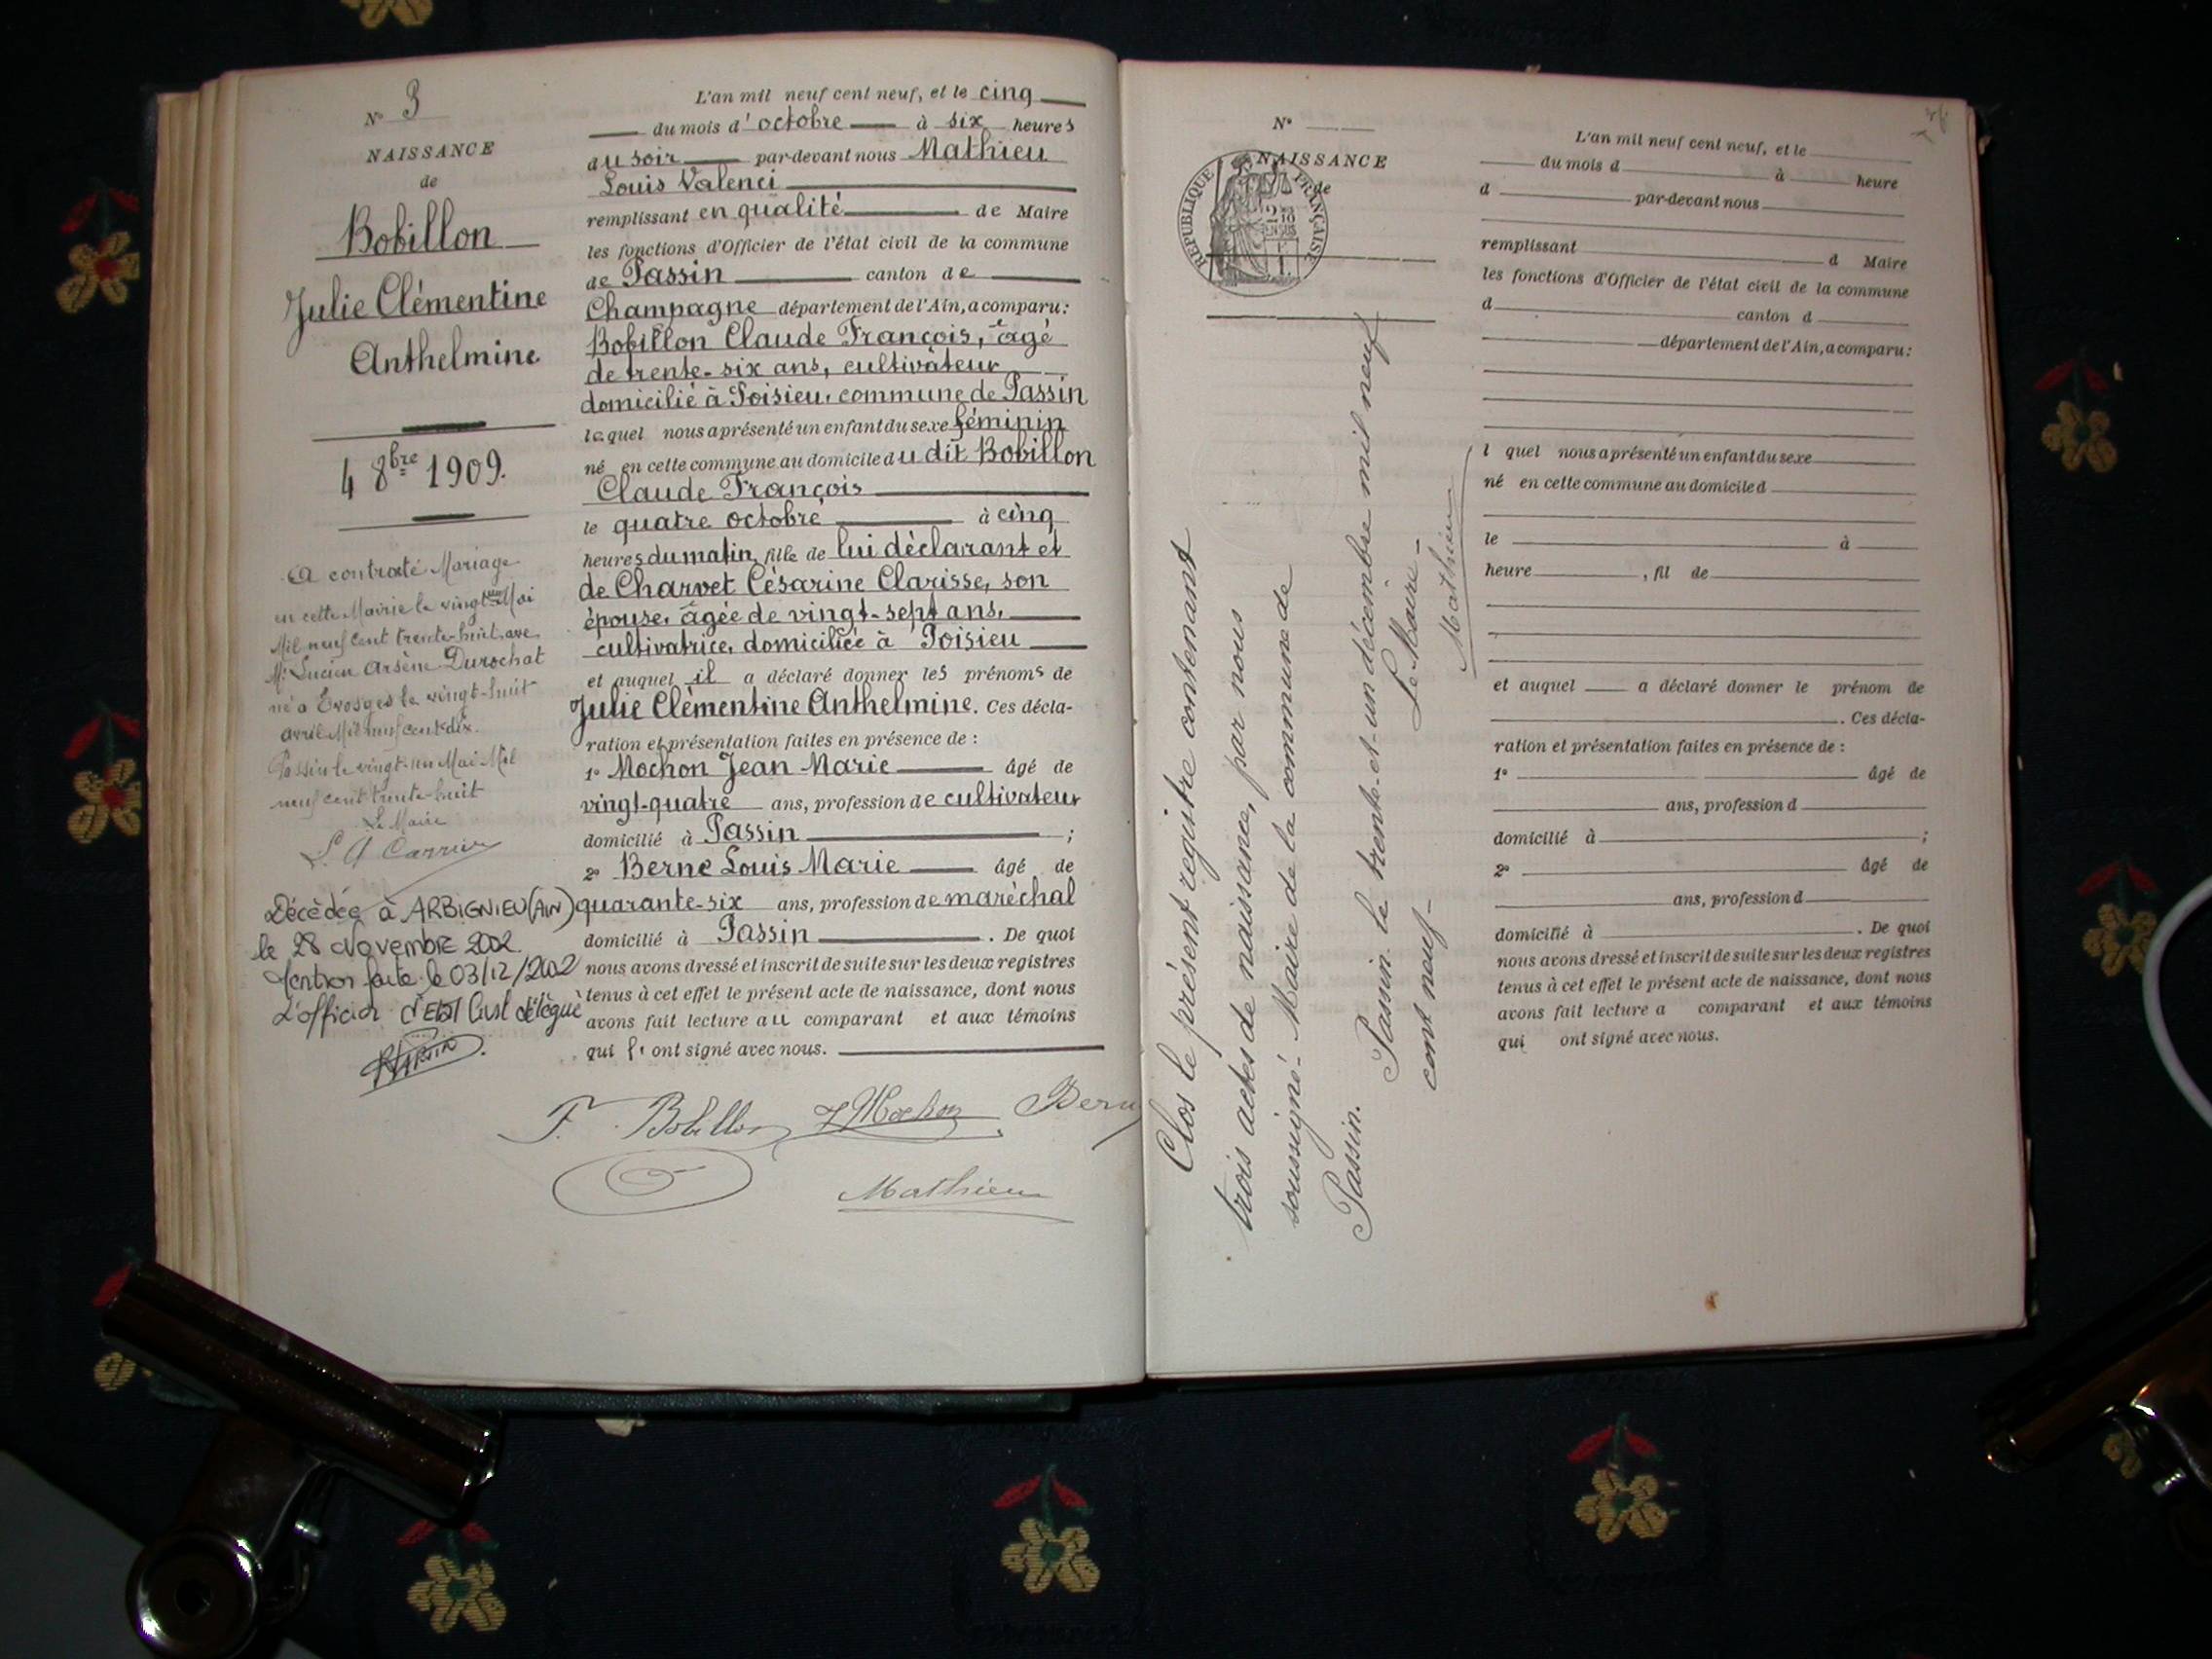 N° 3
NAISSANCE
de
Bobillon
Julie Clémentine
Anthelmine
4 8bre 1909.
A contracté Mariage
en cette Mairie le vingt un Mai
Mil neuf cent trente-huit avec
Mr Lucien Arsène Durochat
né à Evosges le vingt-huit
avril Mil neuf cent dix.
Passin le vingt-un Mai Mil
neuf cent trente-huit
Le Maire
Décédée à ARBIGNIEU (AIN)
le 28 Novembre 2002.
Mention faite le 03/12/2002
L'officier d'Etat Civil délégué
L'an mil neuf cent neuf, et le cinq
du mois d'octobre à six heures
du soir par-devant nous Mathieu
Louis Valenci
remplissant en qualité de Maire
les fonctions d'Officier de l'état civil de la commune
de Passin canton de
Champagne département de l'Ain, a comparu:
Bobillon Claude François, âgé
de trente-six ans, cultivateur
domicilié à Poisieu, commune de Passin
lequel nous a présenté un enfant du sexe féminin
né en cette commune au domicile du dit Bobillon
Claude François
le quatre octobre à cinq
heures du matin, fille de lui déclarant et
de Charvet Césarine Clarisse, son
épouse, âgée de vingt-sept ans,
cultivatrice, domiciliée à Poisieu
et auquel il a déclaré donner les prénoms de
Julie Clémentine Anthelmine. Ces décla-
ration et présentation faites en présence de :
1° Mochon Jean Marie âgé de
vingt-quatre ans, profession de cultivateur
domicilié à Passin ;
2° Berne Louis Marie âgé de
quarante-six ans, profession de maréchal
domicilié à Passin . De quoi
nous avons dressé et inscrit de suite sur les deux registres
tenus à cet effet le présent acte de naissance, dont nous
avons fait lecture au comparant et aux témoins
qui l' ont signé avec nous.
F. Bobillon J Mochon Bern
Mathieu
N°
NAISSANCE
de
RÉPUBLIQUE FRANÇAISE
Clos le présent registre contenant
trois actes de naissance, par nous
soussigné - Maire de la commune de
Passin.
Passin le trente-et-un décembre mil neuf
cent neuf -
Le Maire -
Mathieu
L'an mil neuf cent neuf, et le
du mois d à heure
d par-devant nous
remplissant d Maire
les fonctions d'Officier de l'état civil de la commune
d canton d
département de l'Ain, a comparu:
l quel nous a présenté un enfant du sexe
né en cette commune au domicile d
le à
heure , fil de
et auquel a déclaré donner le prénom de
. Ces décla-
ration et présentation faites en présence de :
1° âgé de
ans, profession d
domicilié à ;
2° âgé de
ans, profession d
domicilié à . De quoi
nous avons dressé et inscrit de suite sur les deux registres
tenus à cet effet le présent acte de naissance, dont nous
avons fait lecture a comparant et aux témoins
qui ont signé avec nous.